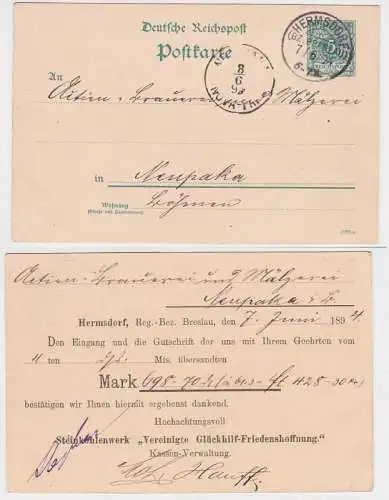 Deutsche Reichspost
Postkarte
HERMSDORF
An
Actien-Brauerei & Mälzerei
8
6
in Neupaka
Wohnung
(Straße und Hausnummer)
Böhmen
Actien-Brauerei und Mälzerei
Neupaka i. B.
Hermsdorf, Reg.-Bez. Breslau, den 7. Juni 189
Den Eingang und die Gutschrift der uns mit Ihrem Geehrten vom
ten Mts. übersandten
Mark 698-70
bestätigen wir Ihnen hiermit ergebenst dankend.
Hochachtungsvoll
Steinkohlenwerk „Vereinigte Glückhilf-Friedenshoffnung."
Kassen-Verwaltung.
Hauff.